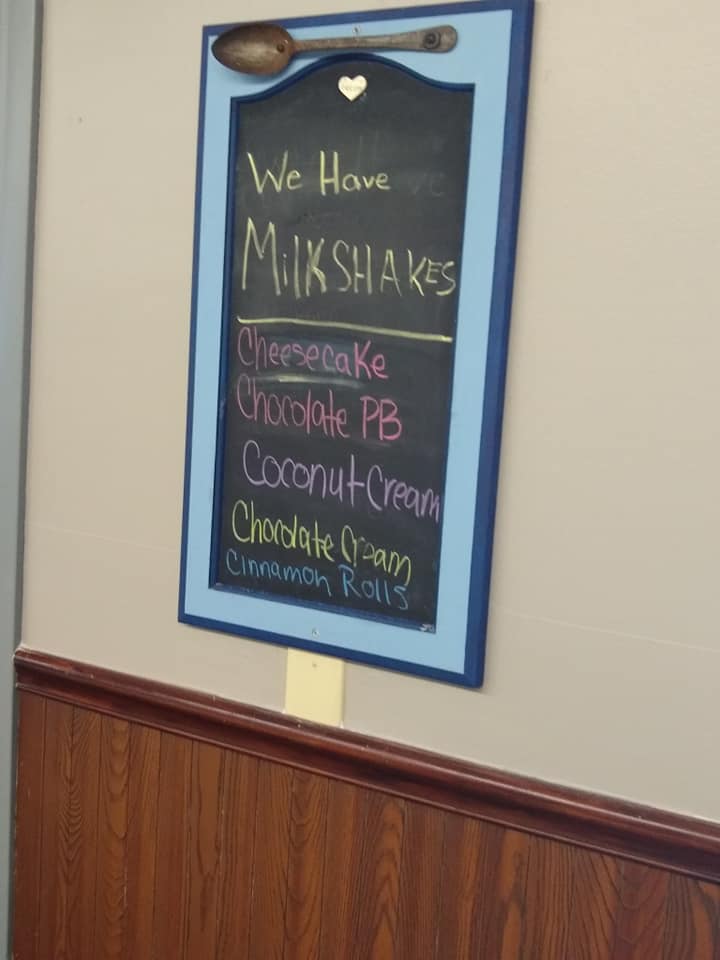 We Have
MilKSHAKES
CheesecaKe
Chocolate PB
Coconut Cream
Chocolate Cream
Cinnamon Rolls